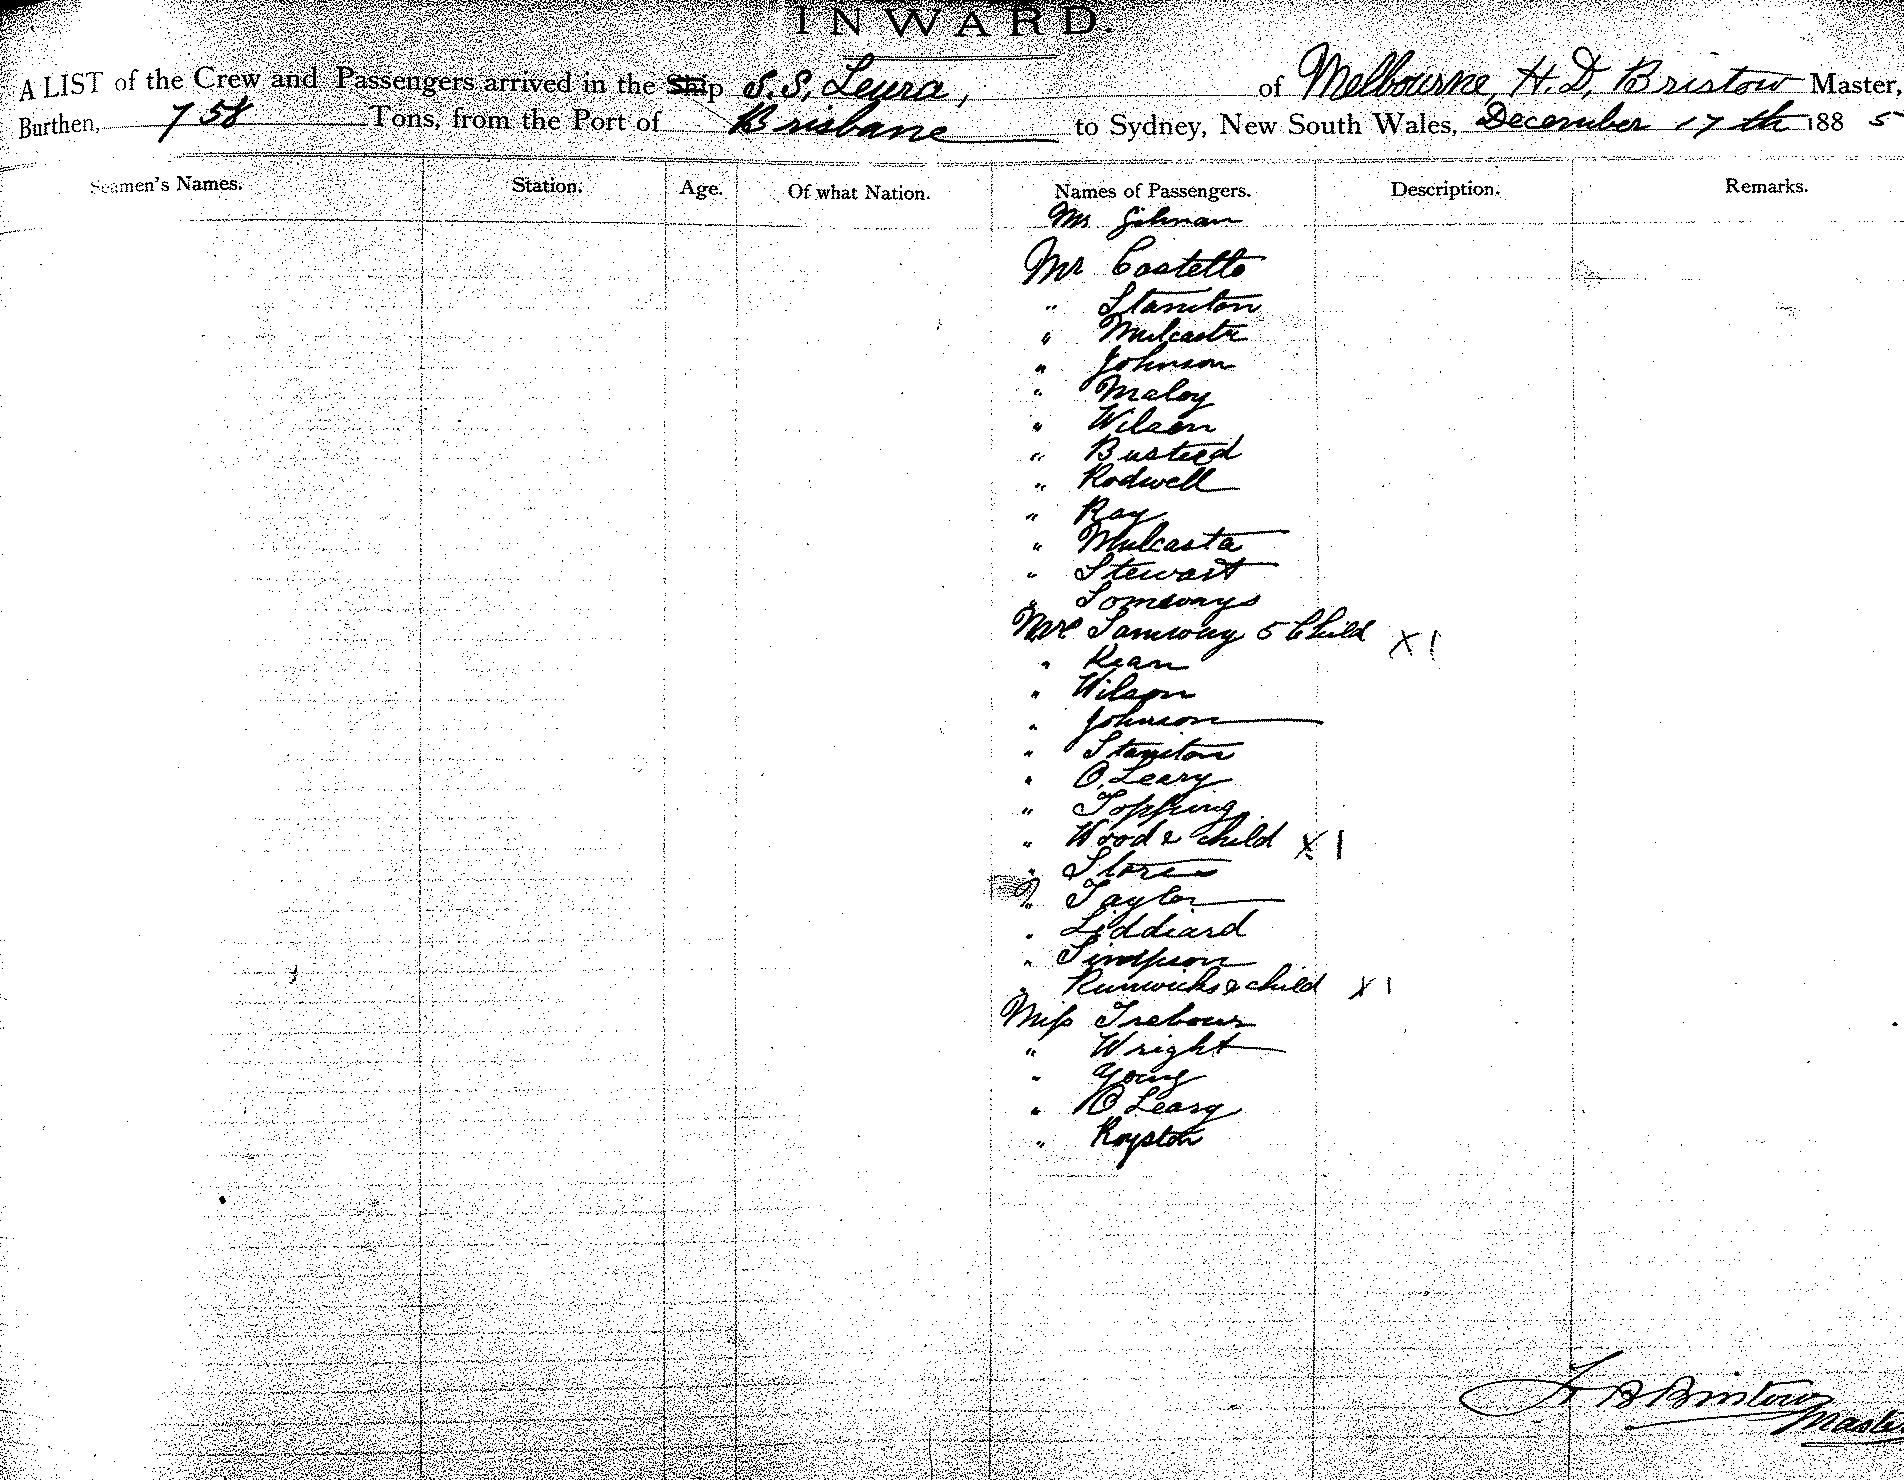 INWARD.
A LIST of the Crew and Passengers arrived in the Ship S.S. Leura, of Melbourne, H.D. Bristow Master,
Burthen, 758 Tons, from the Port of Brisbane to Sydney, New South Wales, December 17th 1885
Seamen's Names. Station. Age. Of what Nation. Names of Passengers. Description. Remarks.
Mr Gilman
Mr Costello
" Staniton
" Mulcaste
" Johnson
" Maloy
" Wilson
" Busteed
" Rodwell
" Ray
" Mulcasta
" Stewart
" Somways
Mrs Samway 5 Child X 1
" Kean
" Wilson
" Johnson
" Staniton
" O.Leary
" Topping
" Wood & child X 1
"
" Taylor
" Liddiard
" Simpson
" & child X 1
Miss Trebour
" Wright
" Young
" O Leary
" Royston
Bristow
Master